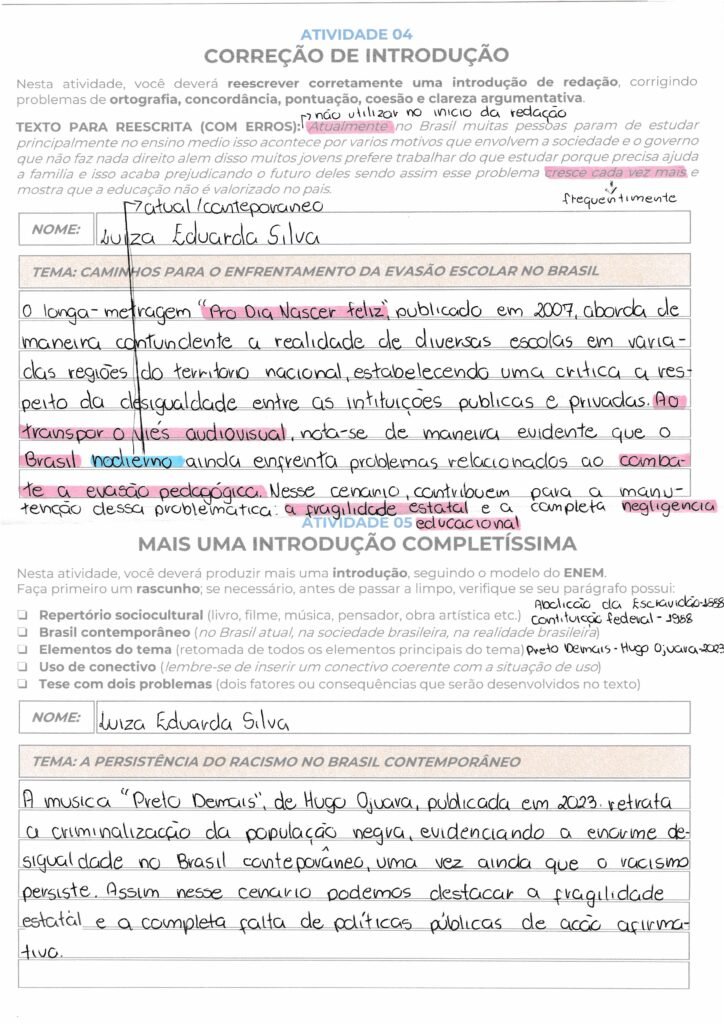 ATIVIDADE 04
CORREÇÃO DE INTRODUÇÃO
Nesta atividade, você deverá reescrever corretamente uma introdução de redação, corrigindo
problemas de ortografia, concordância, pontuação, coesão e clareza argumentativa.
não utilizar no inicio da redação
TEXTO PARA REESCRITA (COM ERROS): Atualmente no Brasil muitas pessoas param de estudar
principalmente no ensino medio isso acontece por varios motivos que envolvem a sociedade e o governo
que não faz nada direito alem disso muitos jovens prefere trabalhar do que estudar porque precisa ajuda
a familia e isso acaba prejudicando o futuro deles sendo assim esse problema cresce cada vez mais e
mostra que a educação não é valorizado no pais.
frequentimente
atual/conteporaneo
NOME: Luiza Eduarda Silva
TEMA: CAMINHOS PARA O ENFRENTAMENTO DA EVASÃO ESCOLAR NO BRASIL
O longa-metragem "Pro Dia Nascer feliz", publicado em 2007, aborda de
maneira contundente a realidade de diversas escolas em varia-
das regiões do territorio nacional, estabelecendo uma critica a res-
peito da desigualdade entre as intituições publicas e privadas. Ao
transpor o viés audiovisual, nota-se de maneira evidente que o
Brasil nodierno ainda enfrenta problemas relacionados ao comba-
te a evasão pedagógica. Nesse cenario, contribuem para a manu-
tenção dessa problemática: a fragilidade estatal e a completa negligência
educacional
ATIVIDADE 05
MAIS UMA INTRODUÇÃO COMPLETÍSSIMA
Nesta atividade, você deverá produzir mais uma introdução, seguindo o modelo do ENEM.
Faça primeiro um rascunho; se necessário, antes de passar a limpo, verifique se seu parágrafo possui:
Repertório sociocultural (livro, filme, música, pensador, obra artística etc.) Abolicão da Escravidão-1888
Brasil contemporâneo (no Brasil atual, na sociedade brasileira, na realidade brasileira) Contituição federal - 1988
Elementos do tema (retomada de todos os elementos principais do tema) Preto Demais - Hugo Ojuara-2023
Uso de conectivo (lembre-se de inserir um conectivo coerente com a situação de uso)
Tese com dois problemas (dois fatores ou consequências que serão desenvolvidos no texto)
NOME: Luiza Eduarda Silva
TEMA: A PERSISTÊNCIA DO RACISMO NO BRASIL CONTEMPORÂNEO
A musica "Preto Demais", de Hugo Ojuara, publicada em 2023. retrata
a criminalização da população negra, evidenciando a enorme de-
sigualdade no Brasil conteporâneo, uma vez ainda que o racismo
persiste. Assim nesse cenario podemos destacar a fragilidade
estatal e a completa falta de políticas públicas de acão afirma-
tiva.